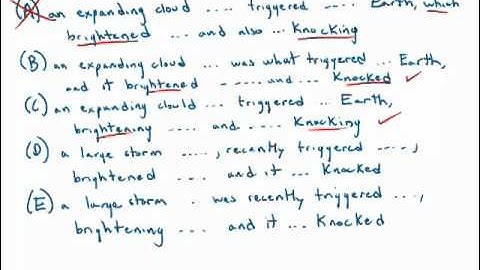 (A) an expanding cloud .... triggered ... Earth, which
brightened ... and also ... Knocking
(B) an expanding cloud ... was what triggered ... Earth,
and it brightened ----- and ... Knocked ✓
(C) an expanding clould ... triggered ... Earth,
brightening .... and .... Knocking ✓
(D) a large storm ...., recently triggered ----,
brightened ... and it ... Knocked
(E) a large storm . was recently triggered ...,
brightening ... and it ... Knocked